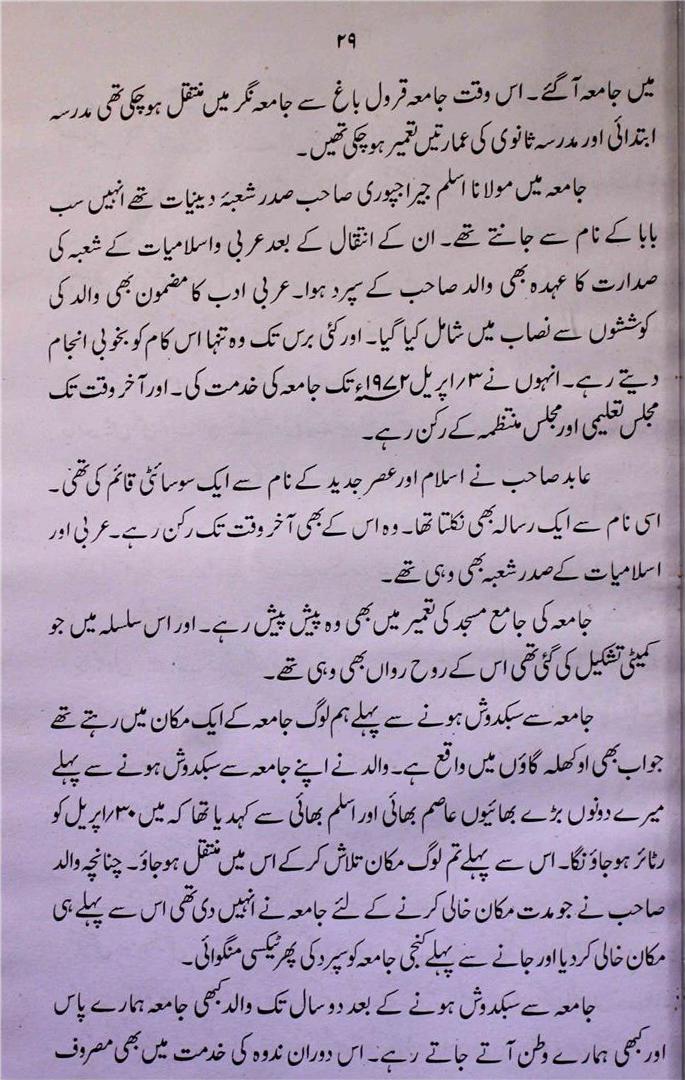 ۲۹
میں جامعہ آگئے۔ اس وقت جامعہ قرول باغ سے جامعہ نگر میں منتقل ہوچکی تھی مدرسہ
ابتدائی اور مدرسہ ثانوی کی عمارتیں تعمیر ہوچکی تھیں۔
جامعہ میں مولانا اسلم جیراجپوری صاحب صدر شعبۂ دینیات تھے انہیں سب
بابا کے نام سے جانتے تھے۔ ان کے انتقال کے بعد عربی واسلامیات کے شعبہ کی
صدارت کا عہدہ بھی والد صاحب کے سپرد ہوا۔ عربی ادب کا مضمون بھی والد کی
کوششوں سے نصاب میں شامل کیا گیا۔ اور کئی برس تک وہ تنہا اس کام کو بخوبی انجام
دیتے رہے۔ انہوں نے ۳/اپریل ۱۹۷۲ء تک جامعہ کی خدمت کی۔ اور آخر وقت تک
مجلس تعلیمی اور مجلس منتظمہ کے رکن رہے۔
عابد صاحب نے اسلام اور عصر جدید کے نام سے ایک سوسائٹی قائم کی تھی۔
اسی نام سے ایک رسالہ بھی نکلتا تھا۔ وہ اس کے بھی آخر وقت تک رکن رہے۔ عربی اور
اسلامیات کے صدر شعبہ بھی وہی تھے۔
جامعہ کی جامع مسجد کی تعمیر میں بھی وہ پیش پیش رہے۔ اور اس سلسلہ میں جو
کمیٹی تشکیل کی گئی تھی اس کے روح رواں بھی وہی تھے۔
جامعہ سے سبکدوش ہونے سے پہلے ہم لوگ جامعہ کے ایک مکان میں رہتے تھے
جو اب بھی اوکھلہ گاؤں میں واقع ہے۔ والد نے اپنے جامعہ سے سبکدوش ہونے سے پہلے
میرے دونوں بڑے بھائیوں عاصم بھائی اور اسلم بھائی سے کہدیا تھا کہ میں ۳۰/اپریل کو
رٹائر ہوجاؤنگا۔ اس سے پہلے تم لوگ مکان تلاش کرکے اس میں منتقل ہوجاؤ۔ چنانچہ والد
صاحب نے جو مدت مکان خالی کرنے کے لئے جامعہ نے انہیں دی تھی اس سے پہلے ہی
مکان خالی کردیا اور جانے سے پہلے کنجی جامعہ کو سپرد کی پھر ٹیکسی منگوائی۔
جامعہ سے سبکدوش ہونے کے بعد دو سال تک والد کبھی جامعہ ہمارے پاس
اور کبھی ہمارے وطن آتے جاتے رہے۔ اس دوران ندوہ کی خدمت میں بھی مصروف